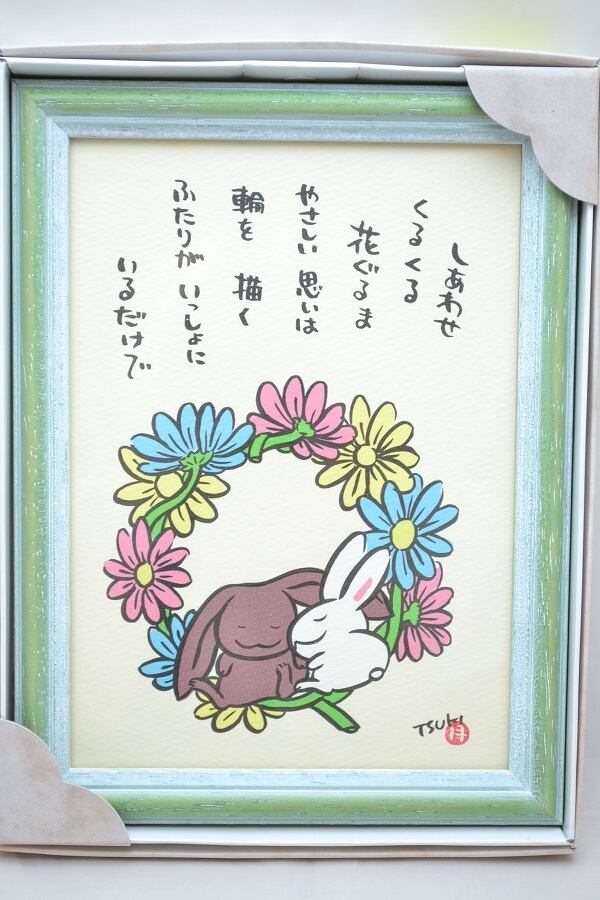 しあわせ
くるくる
花ぐるま
やさしい 思いは
輪を 描く
ふたりが いっしょに
いるだけで
TSUKI
月